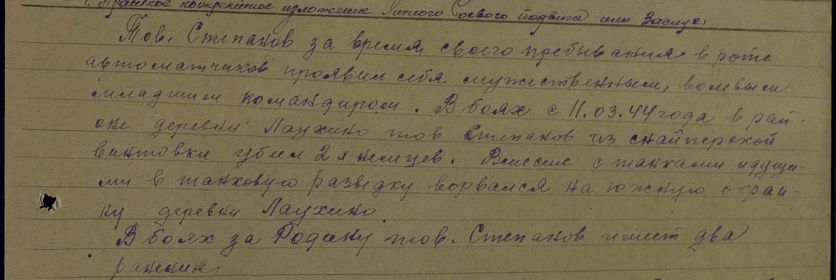 1. Краткое конкретное изложение личного боевого подвига или заслуг:
Тов. Степанов за время своего пребывания в роте
автоматчиков проявил себя мужественным, волевым
младшим командиром. В боях с 11.03.44 года в рай-
оне деревни Лаухино тов Степанов из снайперской
винтовки убил 2х немцев. Вместе с танками идущи-
ми в танковую разведку ворвался на южную окраи-
ну деревни Лаухино.
В боях за Родину тов. Степанов имеет два
ранения.